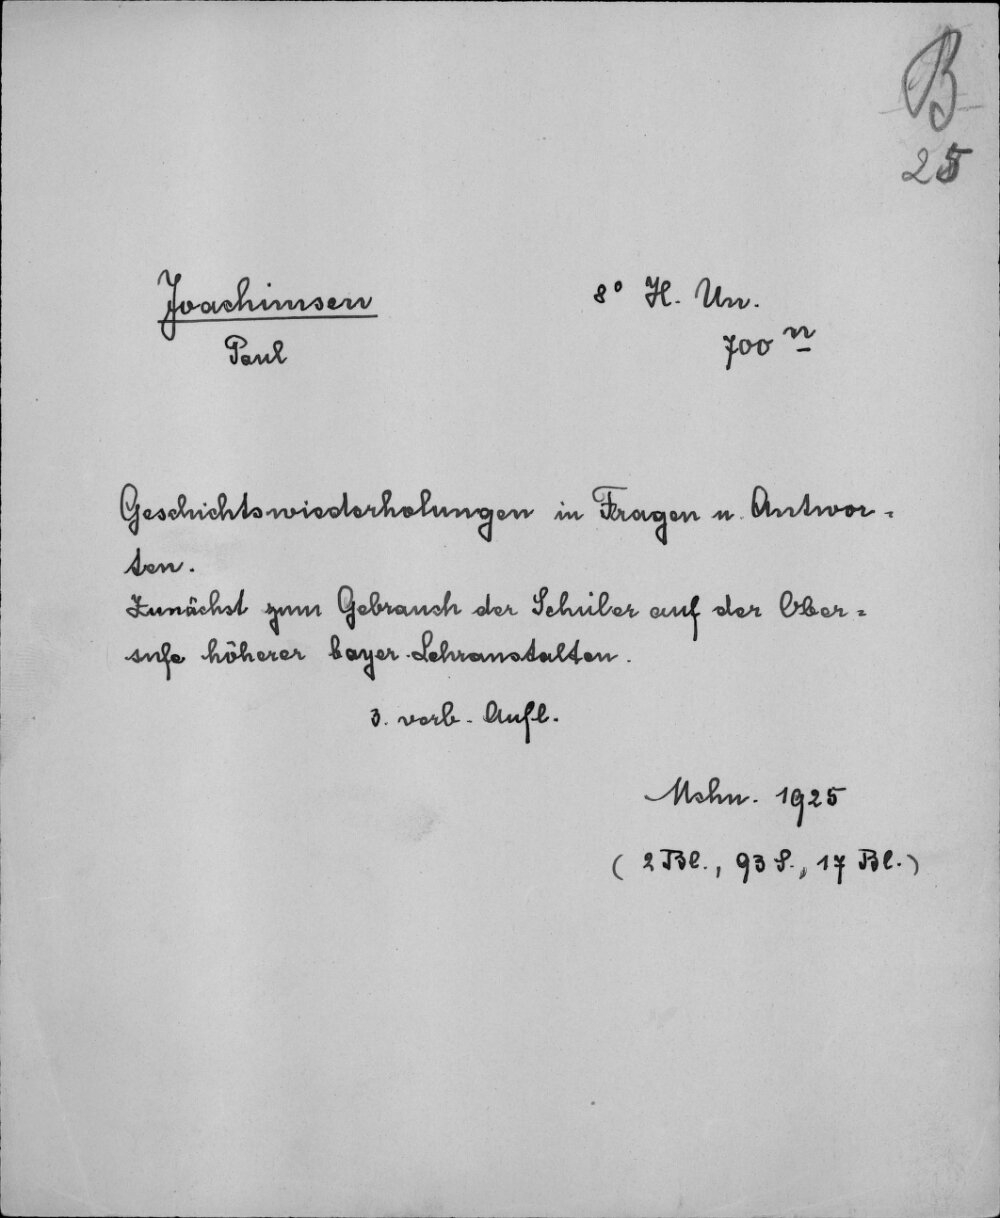 B
25
Joachimsen 8° H. Un.
Paul 700 n
Geschichtswiederholungen in Fragen u. Antwor-
ten.
Zunächst zum Gebrauch der Schüler auf der Ober-
sufe höherer bayer. Lehranstalten.
3. verb. Aufl.
Mchn. 1925
(2 Bl., 93 S., 17 Bl.)